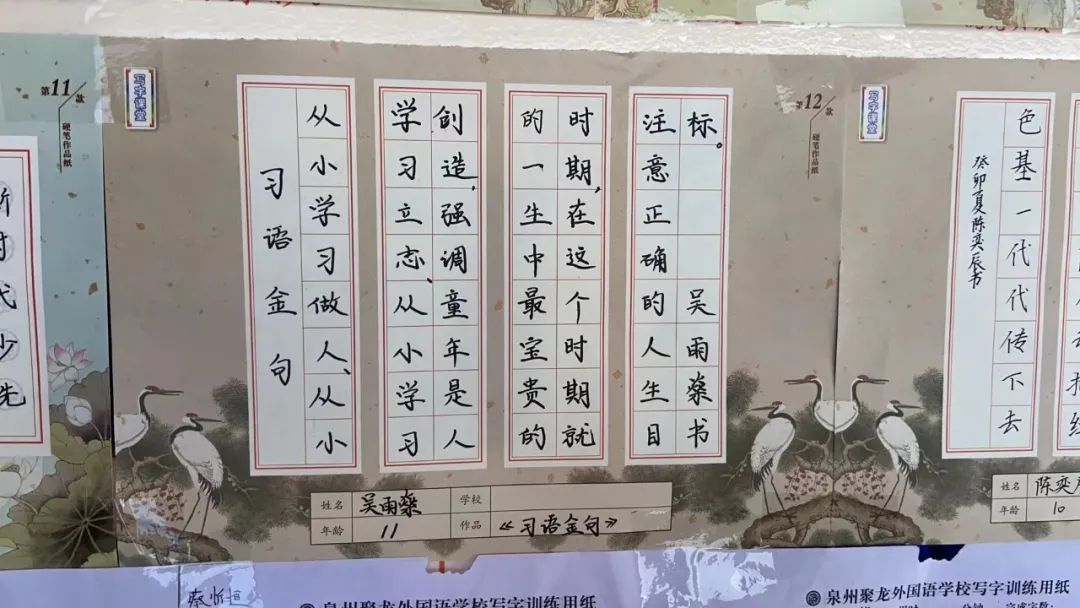 第11款
硬笔作品纸
写字课堂
习语金句
从小学习做人、从小
学习立志、从小学习
创造,强调童年是人
的一生中最宝贵的
时期,在这个时期就
注意正确的人生目
标。 吴雨燊书
姓名 吴雨燊 学校
年龄 11 作品 《习语金句》
第12款
硬笔作品纸
写字课堂
癸卯夏陈奕辰书
色基一代代传下去
姓名 陈奕
年龄 10
泉州聚龙外国语学校写字训练用纸
泉州聚龙外国语学校写字训练用纸